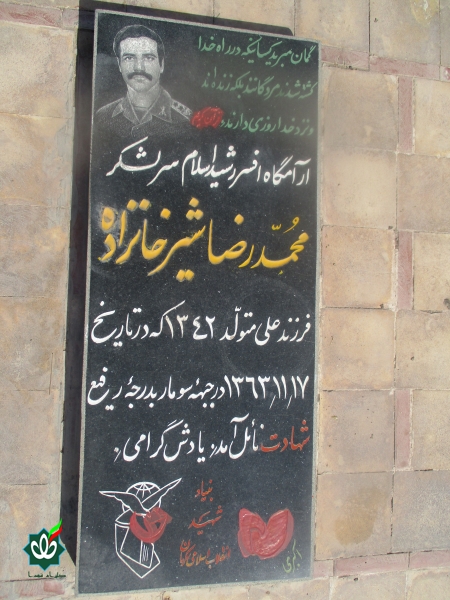 گمان مبرید کسانیکه در راه خدا
کشته شدند مردگانند بلکه زنده اند
و نزد خدا روزی دارند
آرامگاه افسر رشید اسلام سرلشکر
محمدرضا شیرخانزاده
فرزند علی متولد ۱۳۴۲ که در تاریخ
۱۳۶۳/۱۱/۱۷ در جبهه سومار بدرجهٔ رفیع
شهادت نائل آمد. یادش گرامی.
بنیاد
شهید
انقلاب اسلامی